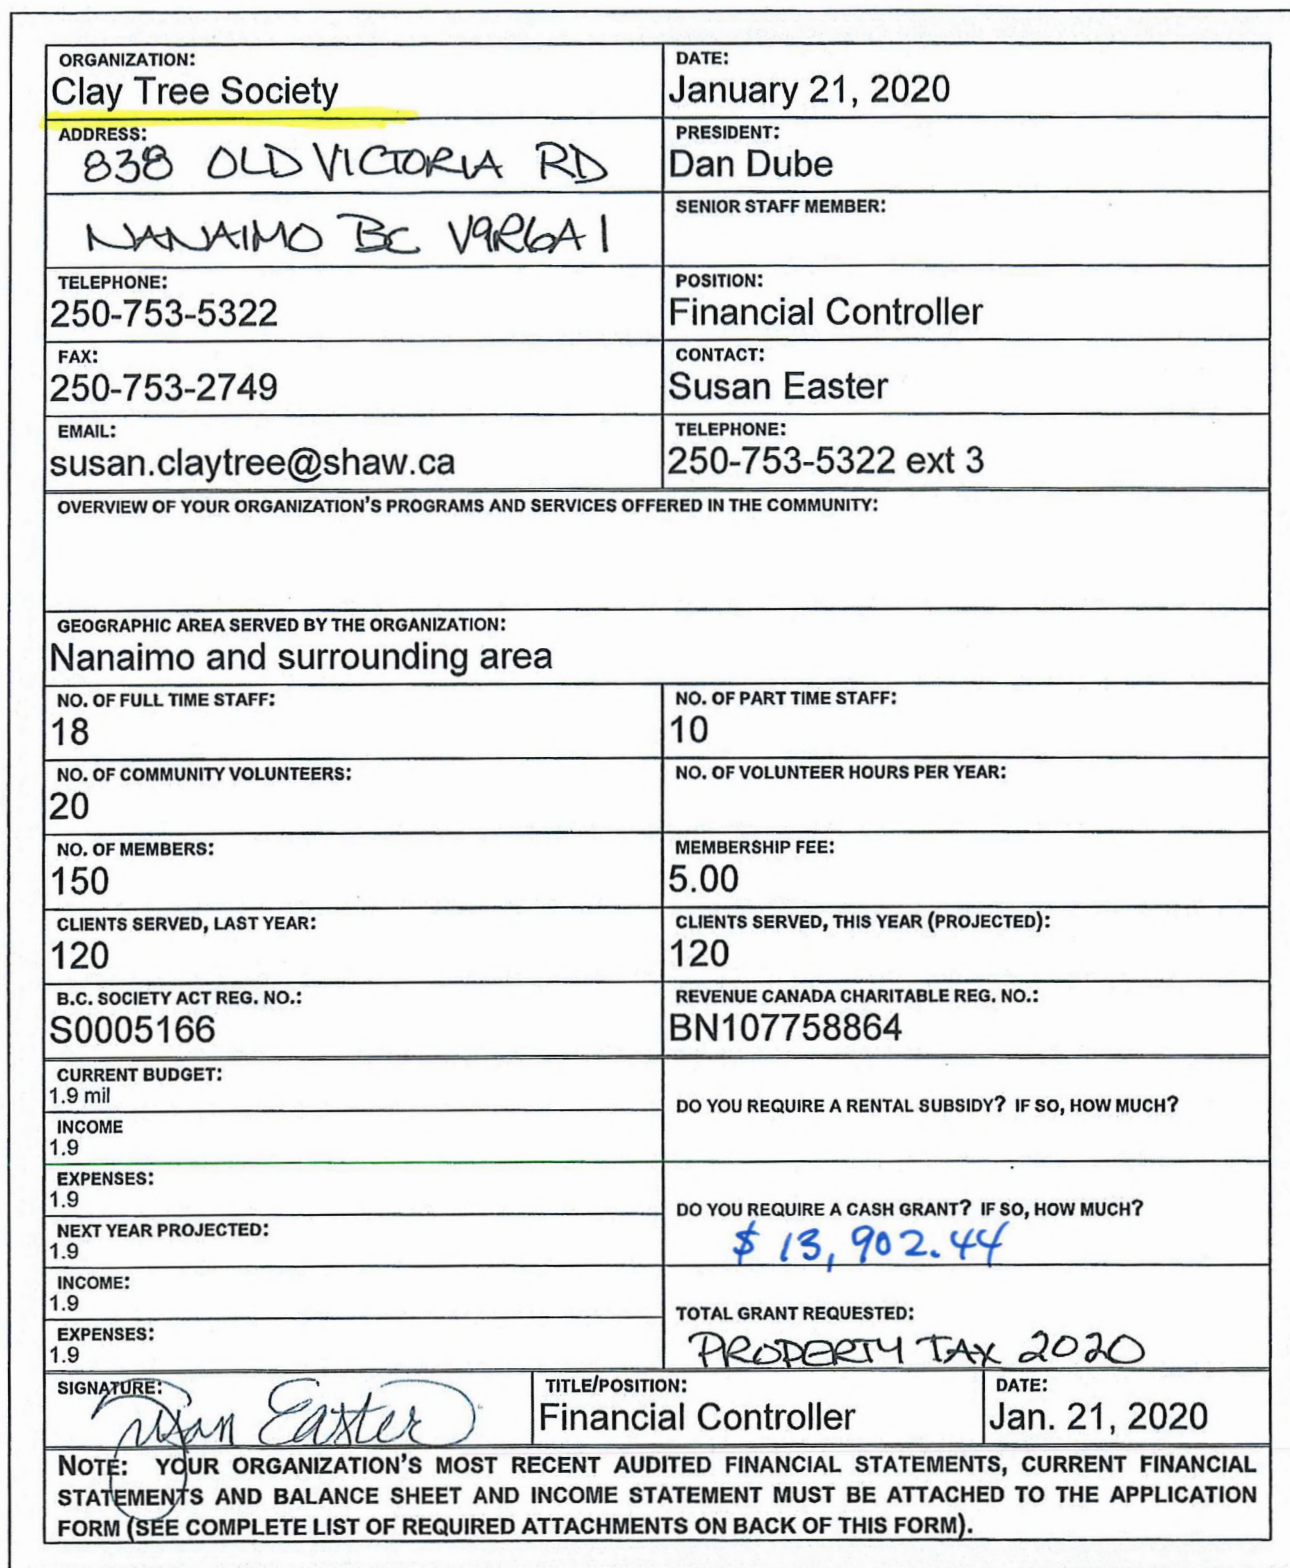 ORGANIZATION:
Clay Tree Society
DATE:
January 21, 2020
ADDRESS:
838 OLD VICTORIA RD
PRESIDENT:
Dan Dube
NANAIMO BC V9R6A1
SENIOR STAFF MEMBER:
TELEPHONE:
250-753-5322
POSITION:
Financial Controller
FAX:
250-753-2749
CONTACT:
Susan Easter
EMAIL:
susan.claytree@shaw.ca
TELEPHONE:
250-753-5322 ext 3
OVERVIEW OF YOUR ORGANIZATION'S PROGRAMS AND SERVICES OFFERED IN THE COMMUNITY:
GEOGRAPHIC AREA SERVED BY THE ORGANIZATION:
Nanaimo and surrounding area
NO. OF FULL TIME STAFF:
18
NO. OF PART TIME STAFF:
10
NO. OF COMMUNITY VOLUNTEERS:
20
NO. OF VOLUNTEER HOURS PER YEAR:
NO. OF MEMBERS:
150
MEMBERSHIP FEE:
5.00
CLIENTS SERVED, LAST YEAR:
120
CLIENTS SERVED, THIS YEAR (PROJECTED):
120
B.C. SOCIETY ACT REG. NO.:
S0005166
REVENUE CANADA CHARITABLE REG. NO.:
BN107758864
CURRENT BUDGET:
1.9 mil
INCOME
1.9
DO YOU REQUIRE A RENTAL SUBSIDY? IF SO, HOW MUCH?
EXPENSES:
1.9
NEXT YEAR PROJECTED:
1.9
DO YOU REQUIRE A CASH GRANT? IF SO, HOW MUCH?
$ 13,902.44
INCOME:
1.9
EXPENSES:
1.9
TOTAL GRANT REQUESTED:
PROPERTY TAX 2020
SIGNATURE:
Susan Easter
TITLE/POSITION:
Financial Controller
DATE:
Jan. 21, 2020
NOTE: YOUR ORGANIZATION'S MOST RECENT AUDITED FINANCIAL STATEMENTS, CURRENT FINANCIAL
STATEMENTS AND BALANCE SHEET AND INCOME STATEMENT MUST BE ATTACHED TO THE APPLICATION
FORM (SEE COMPLETE LIST OF REQUIRED ATTACHMENTS ON BACK OF THIS FORM).